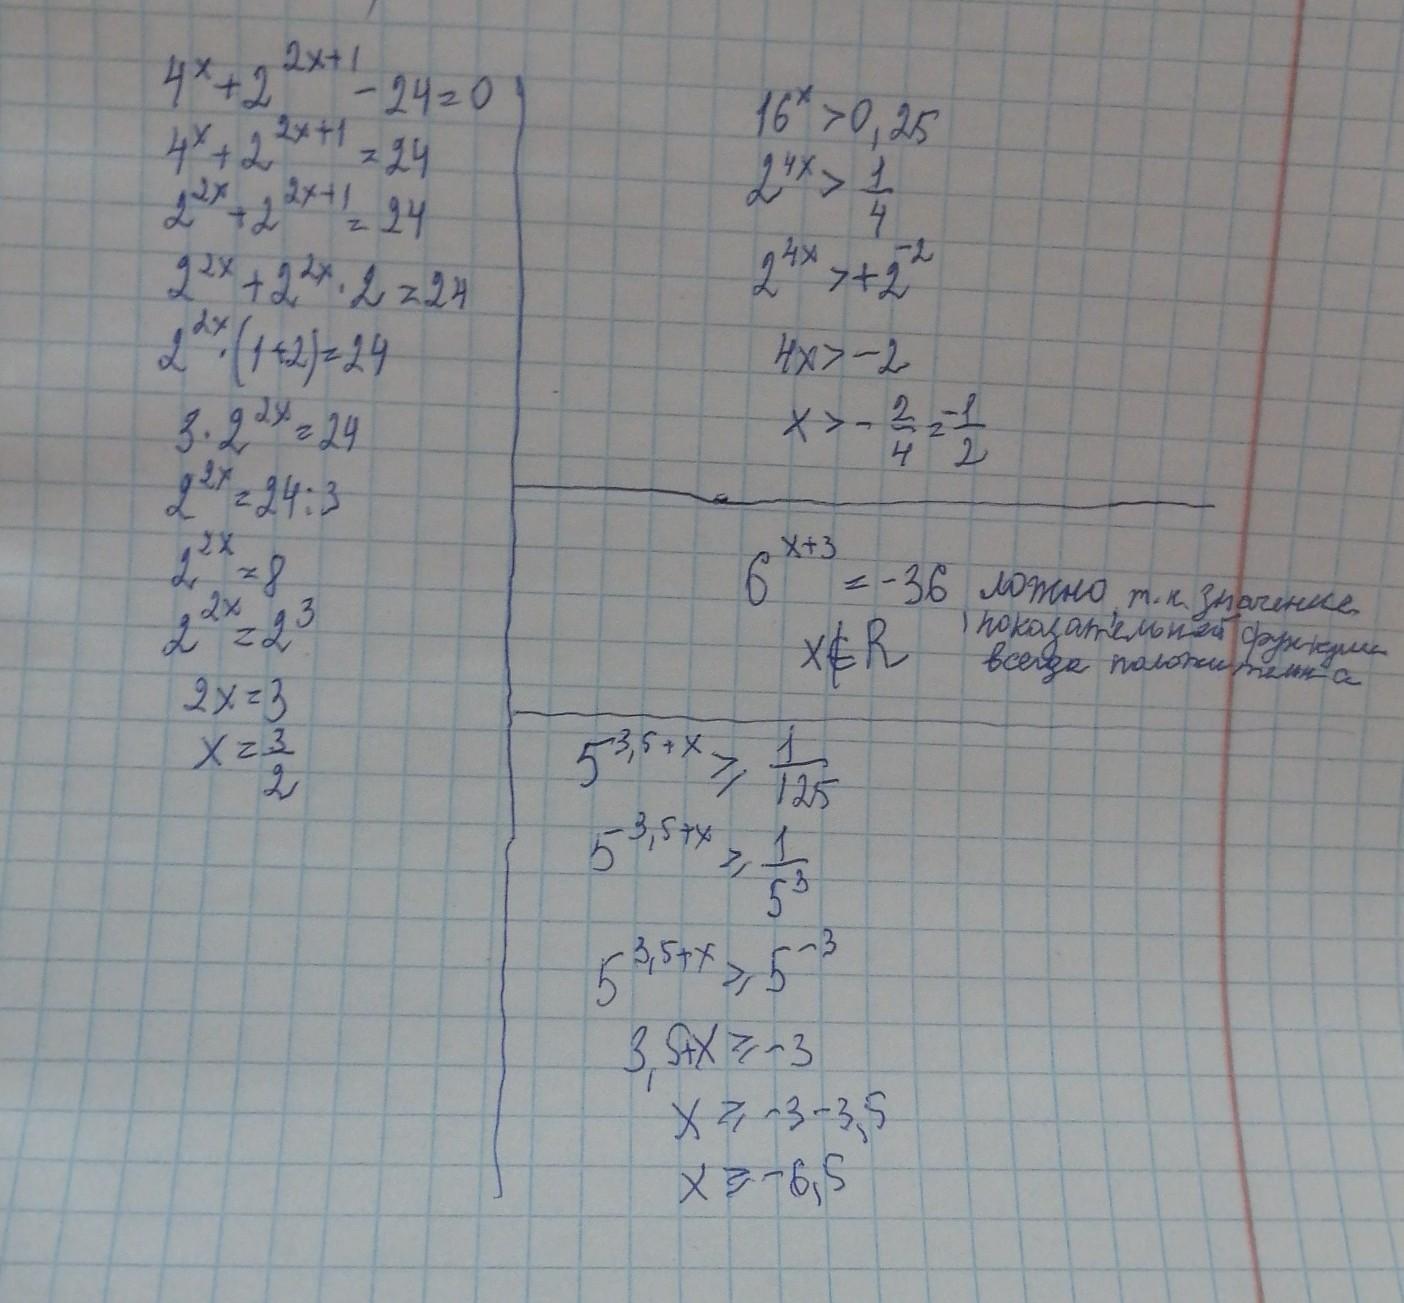 4^x + 2^{2x+1} - 24 = 0
4^x + 2^{2x+1} = 24
2^{2x} + 2^{2x+1} = 24
2^{2x} + 2^{2x} · 2 = 24
2^{2x} · (1+2) = 24
3 · 2^{2x} = 24
2^{2x} = 24 : 3
2^{2x} = 8
2^{2x} = 2^3
2x = 3
x = 3/2
16^x > 0,25
2^{4x} > 1/4
2^{4x} > + 2^{-2}
4x > -2
x > - 2/4 = -1/2
6^{x+3} = -36 ложно, т.к. значение
показательной функции
всегда положительна
x ∉ R
5^{3,5+x} ⩾ 1/125
5^{3,5+x} ⩾ 1/5^3
5^{3,5+x} ⩾ 5^{-3}
3,5+x ⩾ -3
x ⩾ -3-3,5
x ⩾ -6,5